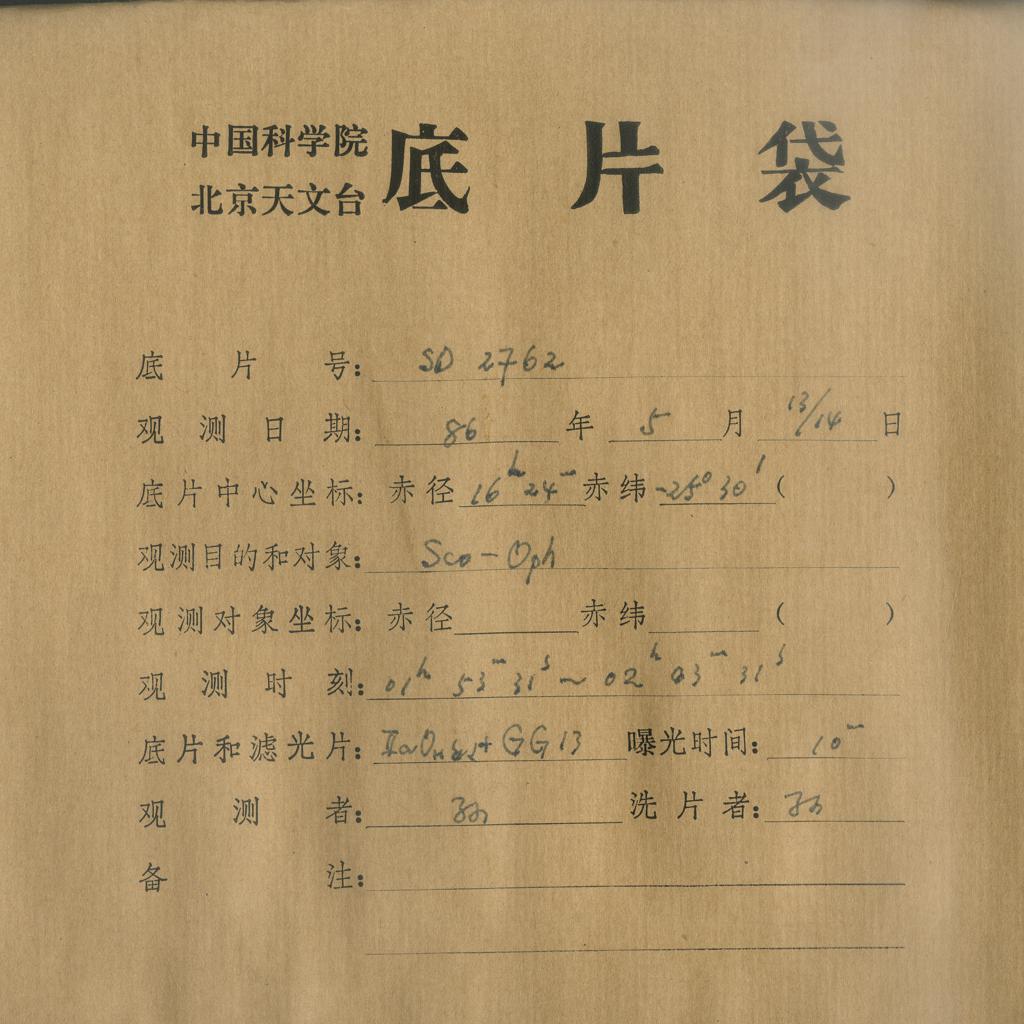 中国科学院
北京天文台 底片袋
底片号: SD 2762
观测日期: 86 年 5 月 13/14 日
底片中心坐标: 赤径 16h 24m 赤纬 -25° 30′ ( )
观测目的和对象: Sco-Oph
观测对象坐标: 赤径 赤纬 ( )
观测时刻: 01h 53m 31s ~ 02h 03m 31s
底片和滤光片: IIaO + GG13 曝光时间: 10m
观测者: 孙 洗片者: 孙
备注: